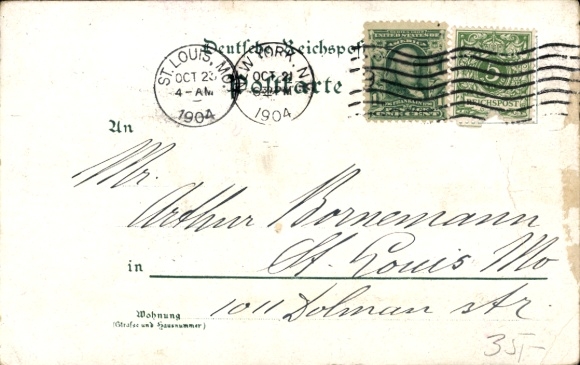 Deutsche Reichspost
Postkarte
ST. LOUIS, MO.
OCT 23
4-AM
1904
NEW YORK, N.
OCT 21
1904
UNITED STATES OF
AMERICA
ONE CENT
5
REICHSPOST
An
Mr.
Arthur Bornemann
in St. Louis Mo
Wohnung 1011 Dolman str.
(Strasse und Hausnummer)
35,-